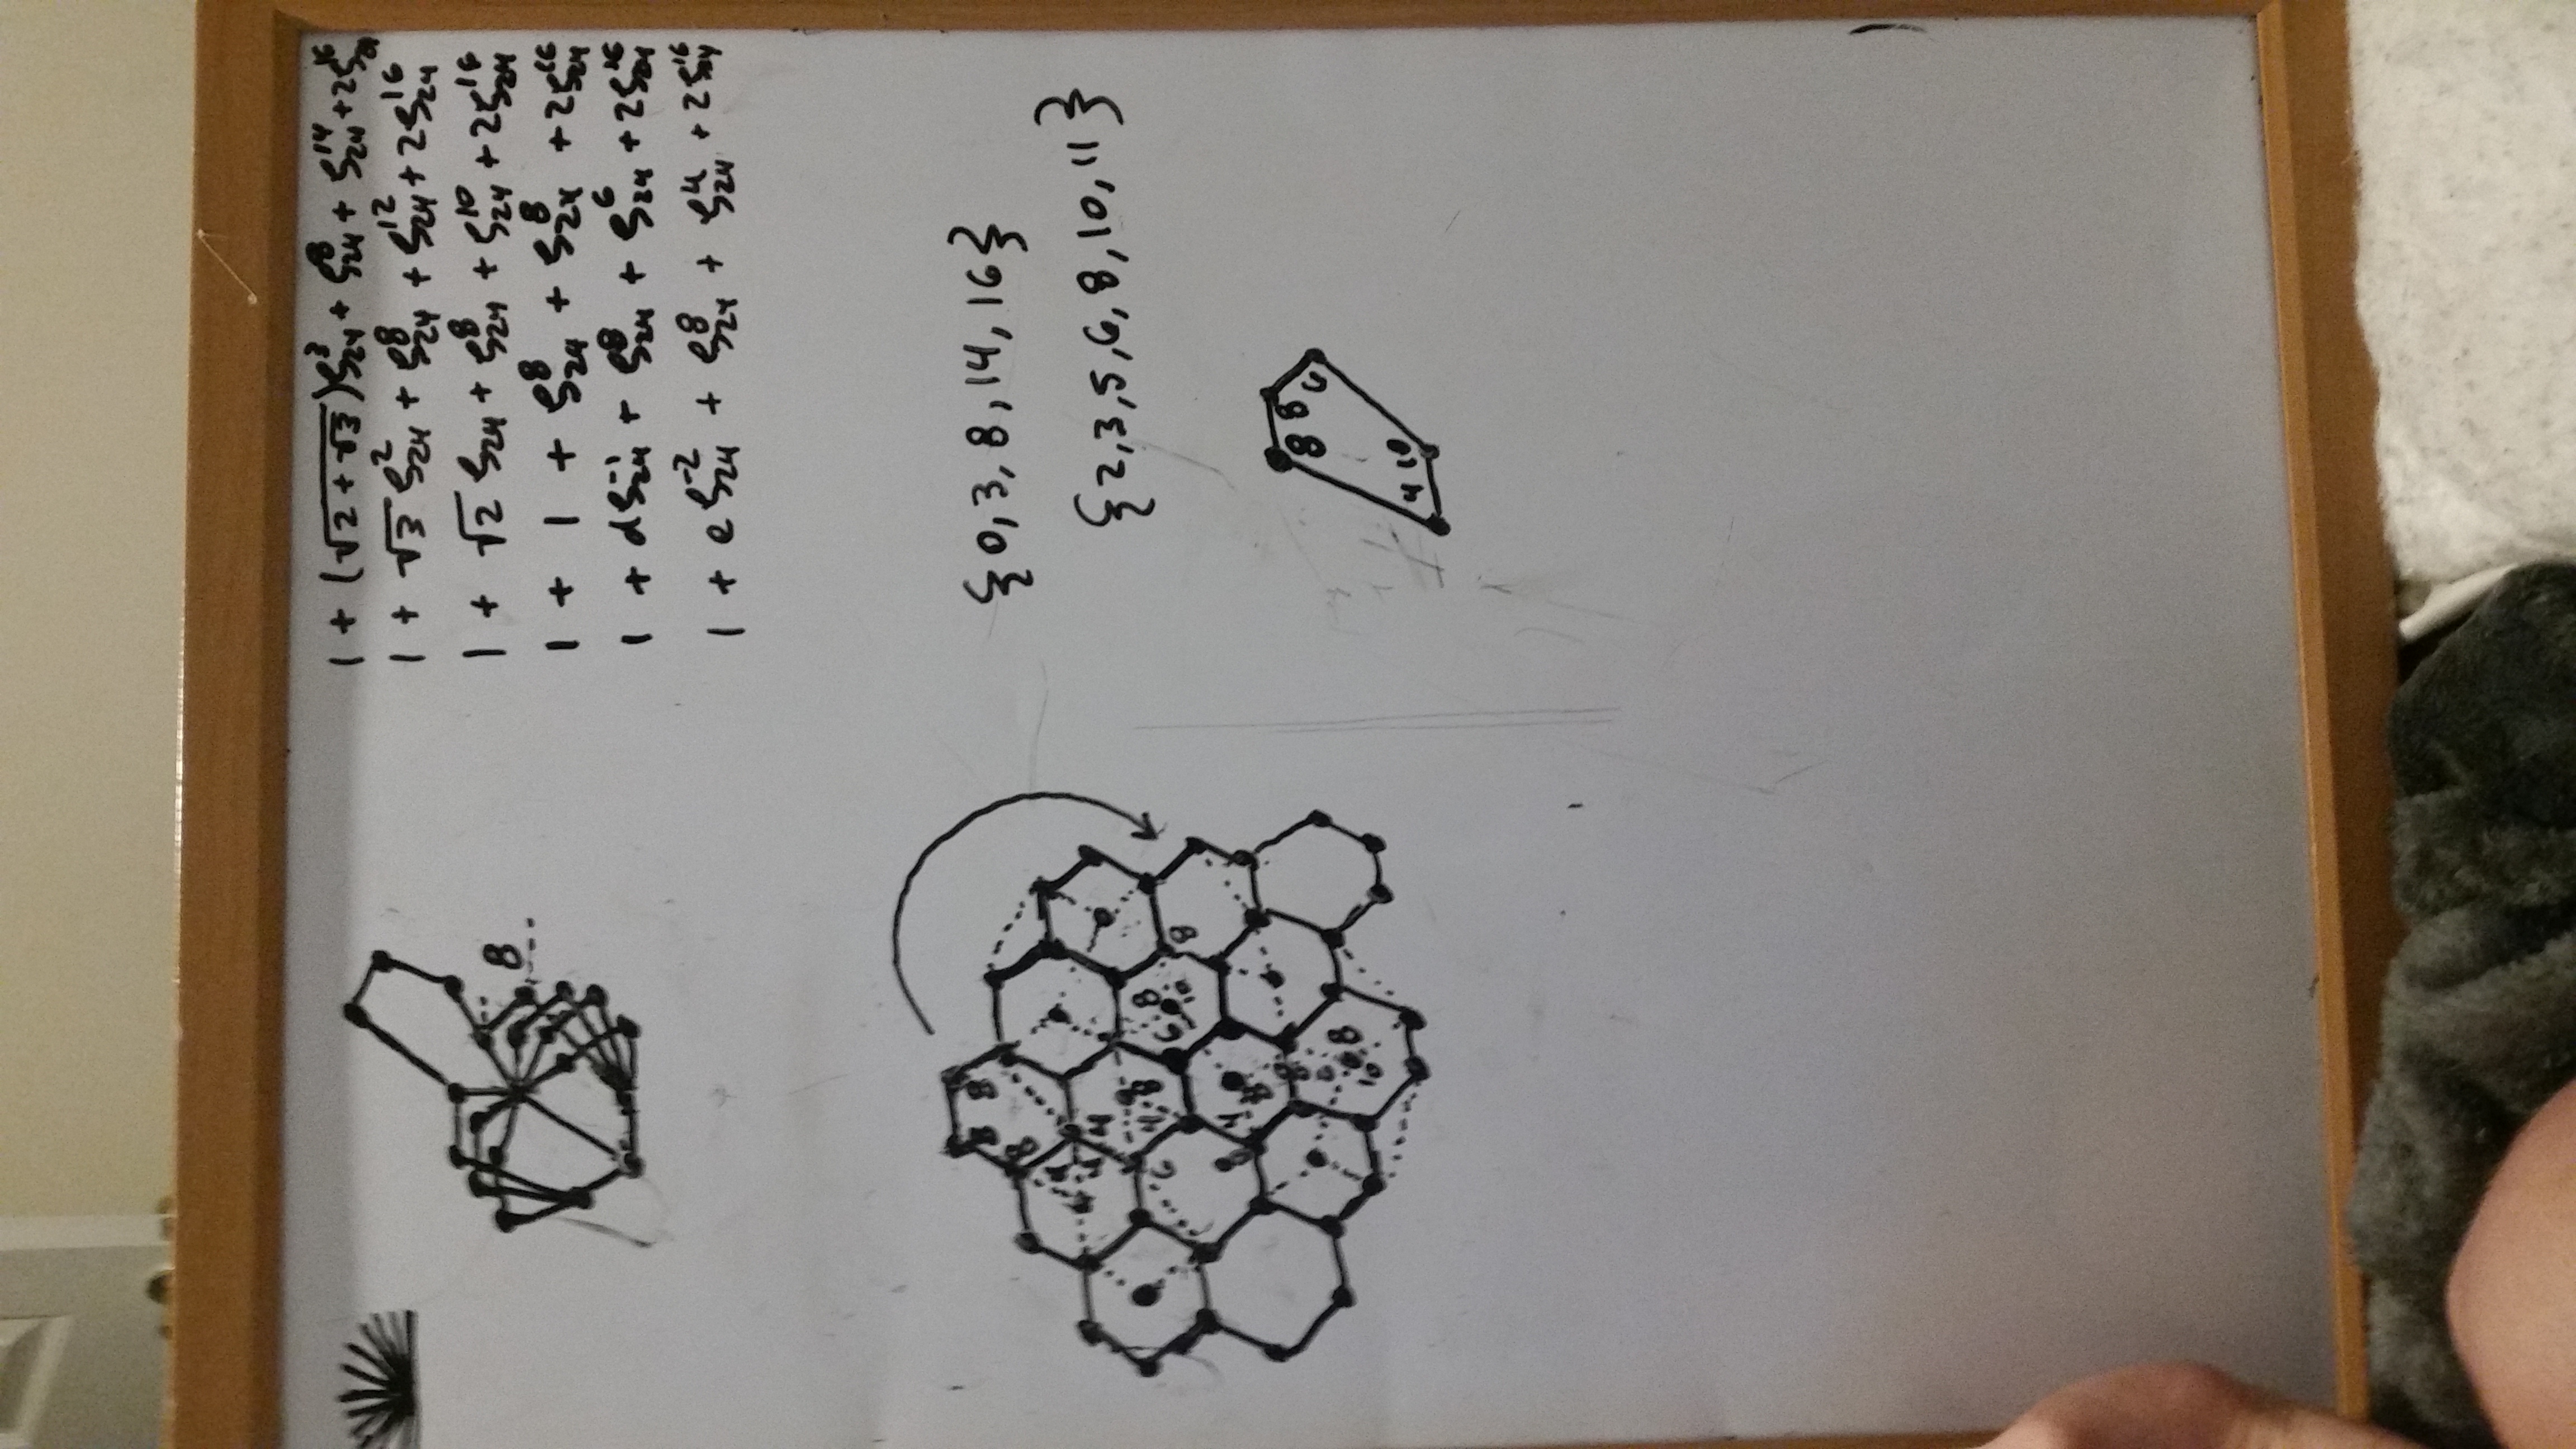 1 + (√2+√3)ζ₂₄³ + ζ₂₄⁸ + ζ₂₄¹⁴ + 2ζ₂₄¹⁶
1 + √3 ζ₂₄² + ζ₂₄⁸ + ζ₂₄¹² + 2ζ₂₄¹⁶
1 + √2 ζ₂₄ + ζ₂₄⁸ + ζ₂₄¹⁰ + 2ζ₂₄¹⁶
1 + 1 + ζ₂₄⁸ + ζ₂₄⁸ + 2ζ₂₄¹⁶
1 + dζ₂₄⁻¹ + ζ₂₄⁸ + ζ₂₄⁶ + 2ζ₂₄¹⁶
1 + eζ₂₄⁻² + ζ₂₄⁸ + ζ₂₄⁴ + 2ζ₂₄¹⁶
8
{0,3,8,14,16}
{2,3,5,6,8,10,11}
8 8
8
4 4
4 8
6
6 8
10
8
4
8
8
6 8
10
8 8
6
4 10